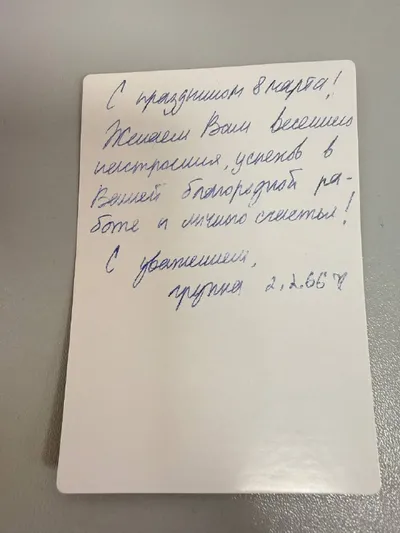 С праздником 8 марта!
Желаем Вам весеннего
настроения, успехов в
Вашей благородной ра-
боте и личного счастья!
С уважением,
группа